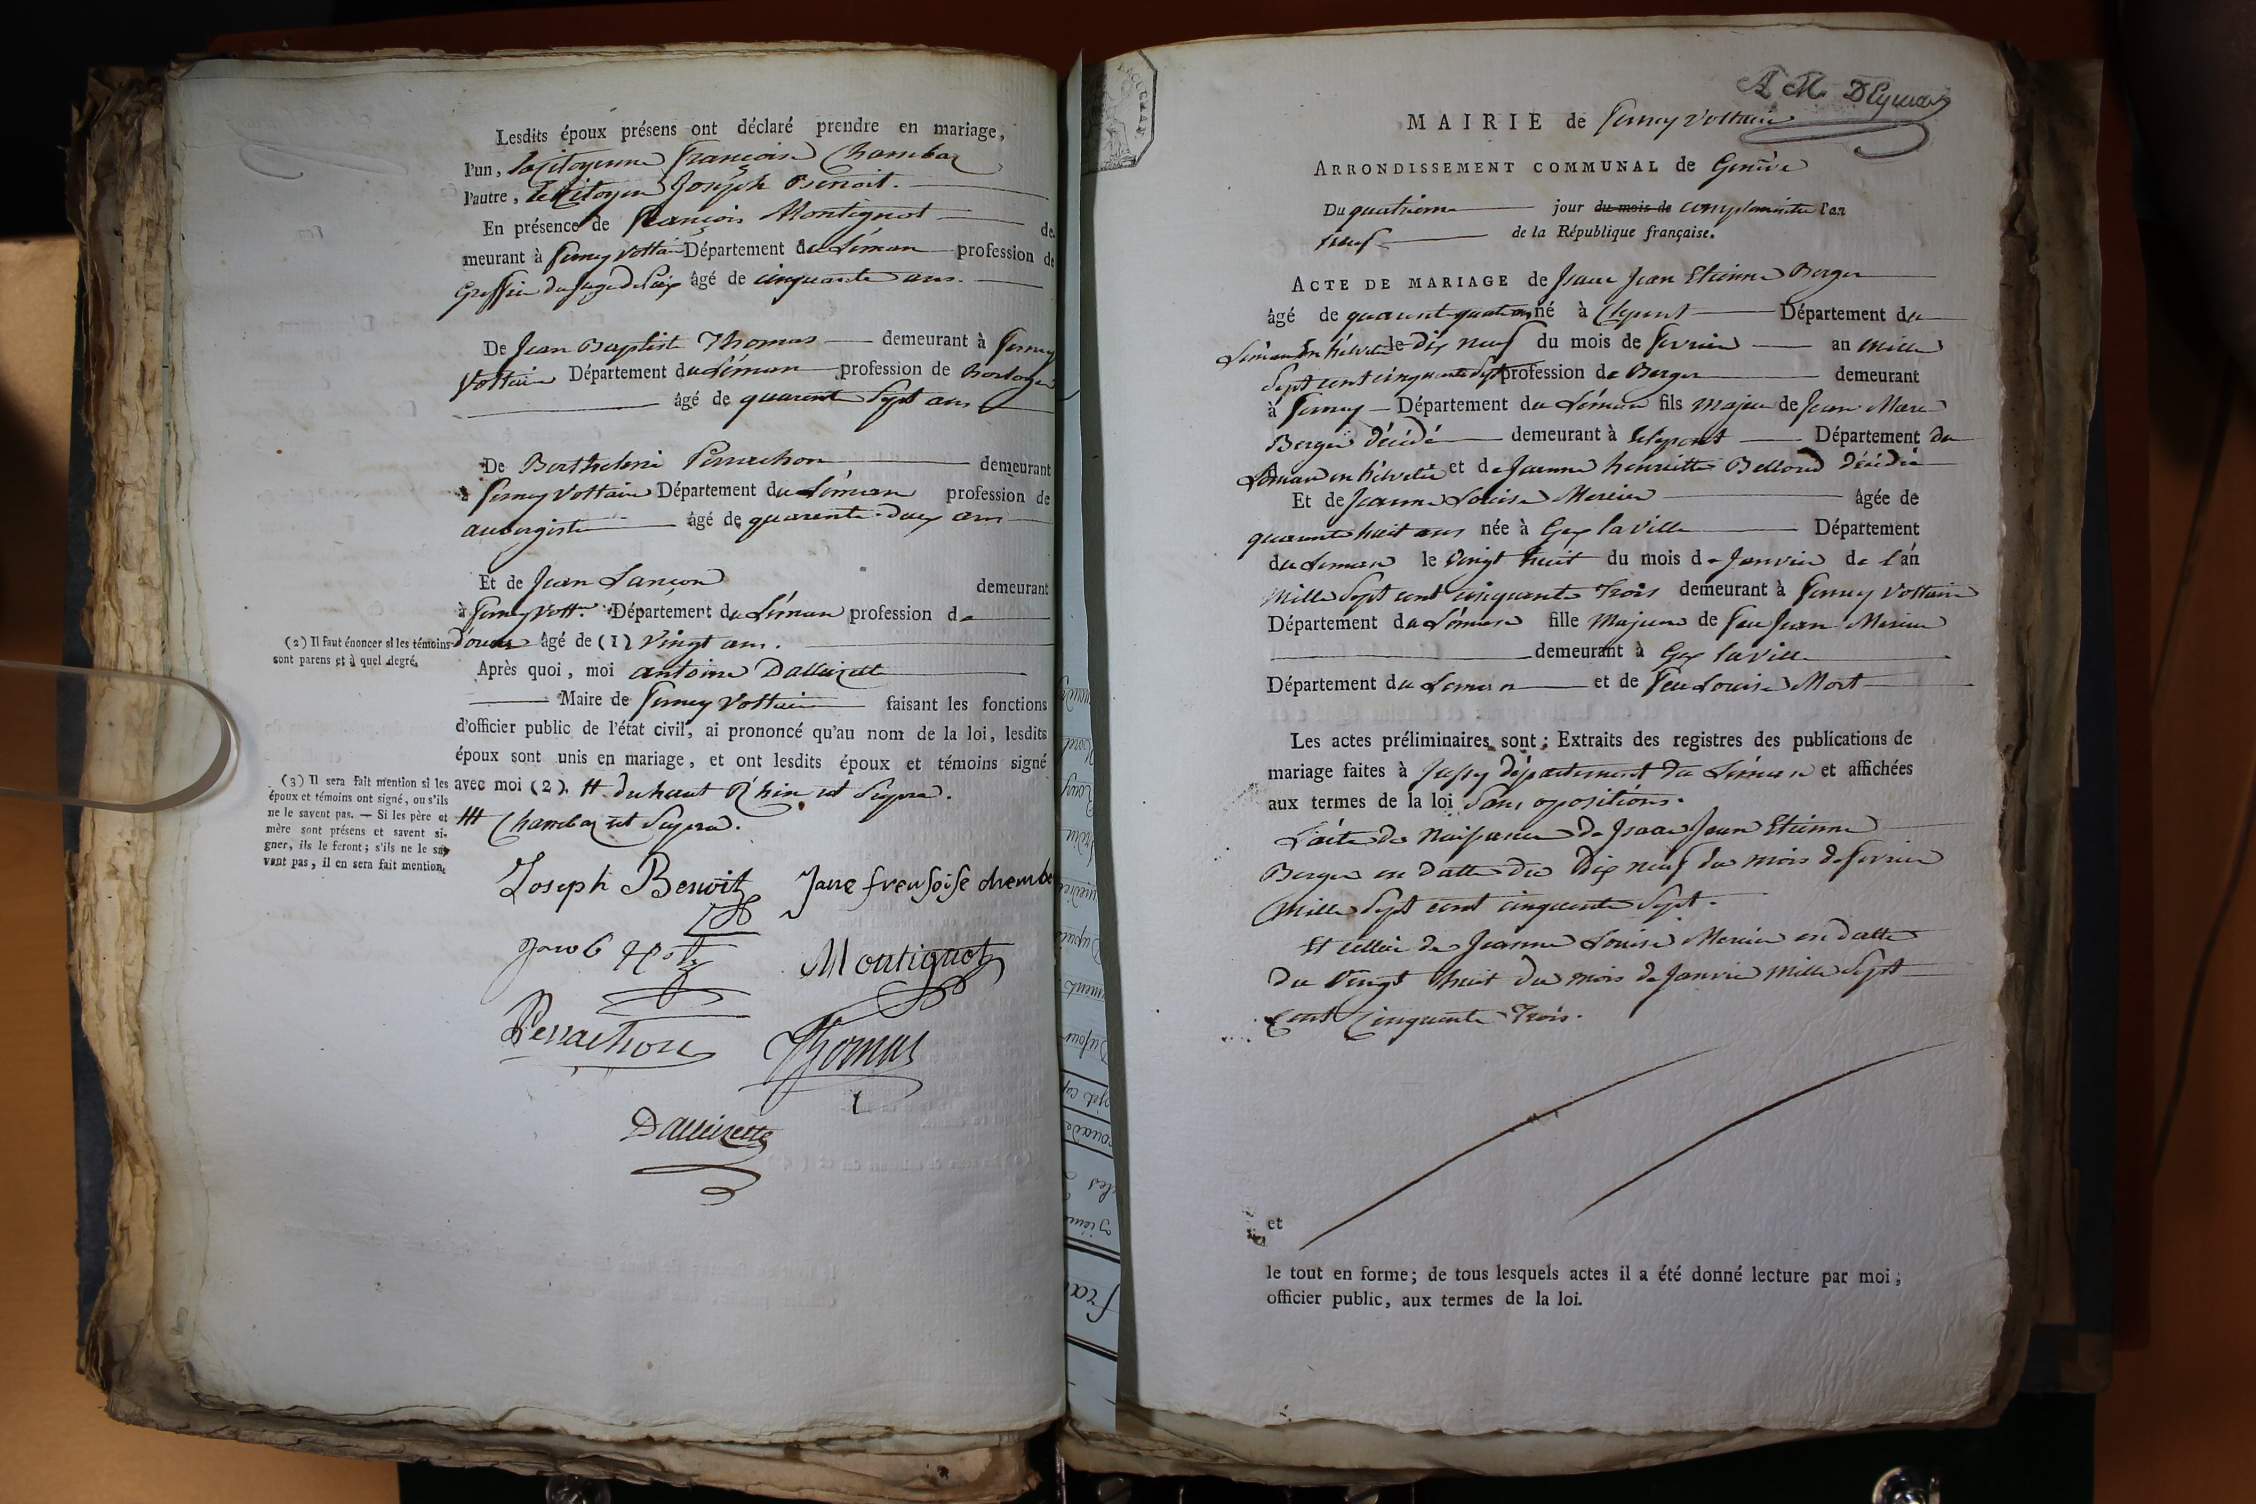 Lesdits époux présens ont déclaré prendre en mariage,
l'un, la Citoyenne Françoise Chambaz
l'autre, le Citoyen Joseph Benoit.
En présence de François Montignot de
meurant à Ferney Voltaire Département du Léman profession de
Greffier du Juge de Paix âgé de cinquante ans.
De Jean Baptiste Thomas demeurant à Ferney
Voltaire Département du Léman profession de horloger
âgé de quarente Sept ans
De Berthelemi Perrachon demeurant
à Ferney Voltaire Département du Léman profession de
aubergiste âgé de quarente-deux ans
Et de Jean Lançon demeurant
à Ferney Volt.re Département du Léman profession de
âgé de (1) Vingt ans.
(2) Il faut énoncer si les témoins
sont parens et à quel degré.
Après quoi, moi antoine Dallizette
Maire de Ferney Voltaire faisant les fonctions
d'officier public de l'état civil, ai prononcé qu'au nom de la loi, lesdits
époux sont unis en mariage, et ont lesdits époux et témoins signé
avec moi (2). # du haut Rhin ut Supra.
## Chambaz ut Supra.
(3) Il sera fait mention si les
époux et témoins ont signé, ou s'ils
ne le savent pas. — Si les père et
mère sont présens et savent si-
gner, ils le feront; s'ils ne le sa-
vent pas, il en sera fait mention.
Joseph Benoit
Montignot
Perrachon Thomas
Dallizette
MAIRIE de Ferney Voltaire
ARRONDISSEMENT COMMUNAL de Genève
Du quatrieme jour du mois de complementaire l'an
neuf de la République française.
ACTE DE MARIAGE de Isaac Jean Etienne Berger
âgé de quarent quatre né à Département du
Léman en helvetie le dix neuf du mois de fevrier an mille
Sept cent cinquante Sept profession de Berger demeurant
à Ferney Département du Léman fils majeur de Jean Marc
Berger décédé demeurant à Département du
Léman en helvetie et de Jeanne henriette Belloud décédée
Et de Jeanne Louise Mercier âgée de
quarente huit ans née à Gex la ville Département
du Leman le Vingt huit du mois de Janvier de l'an
Mille Sept cent cinquante trois demeurant à Ferney Voltaire
Département du Léman fille Majeure de feu Jean Mercier
demeurant à Gex la ville
Département du Leman et de feu Louise Mort
Les actes préliminaires sont: Extraits des registres des publications de
mariage faites à département du Léman et affichées
aux termes de la loi Sans opositions.
L'acte de Naissance de Isaac Jean Etienne
Berger en datte du Dix neuf du mois de fevrier
Mille Sept cent cinquante Sept.
Et celui de Jeanne Louise Mercier en datte
du Vingt huit du mois de Janvier Mille Sept
Cent Cinquente Trois.
et
le tout en forme; de tous lesquels actes il a été donné lecture par moi;
officier public, aux termes de la loi.